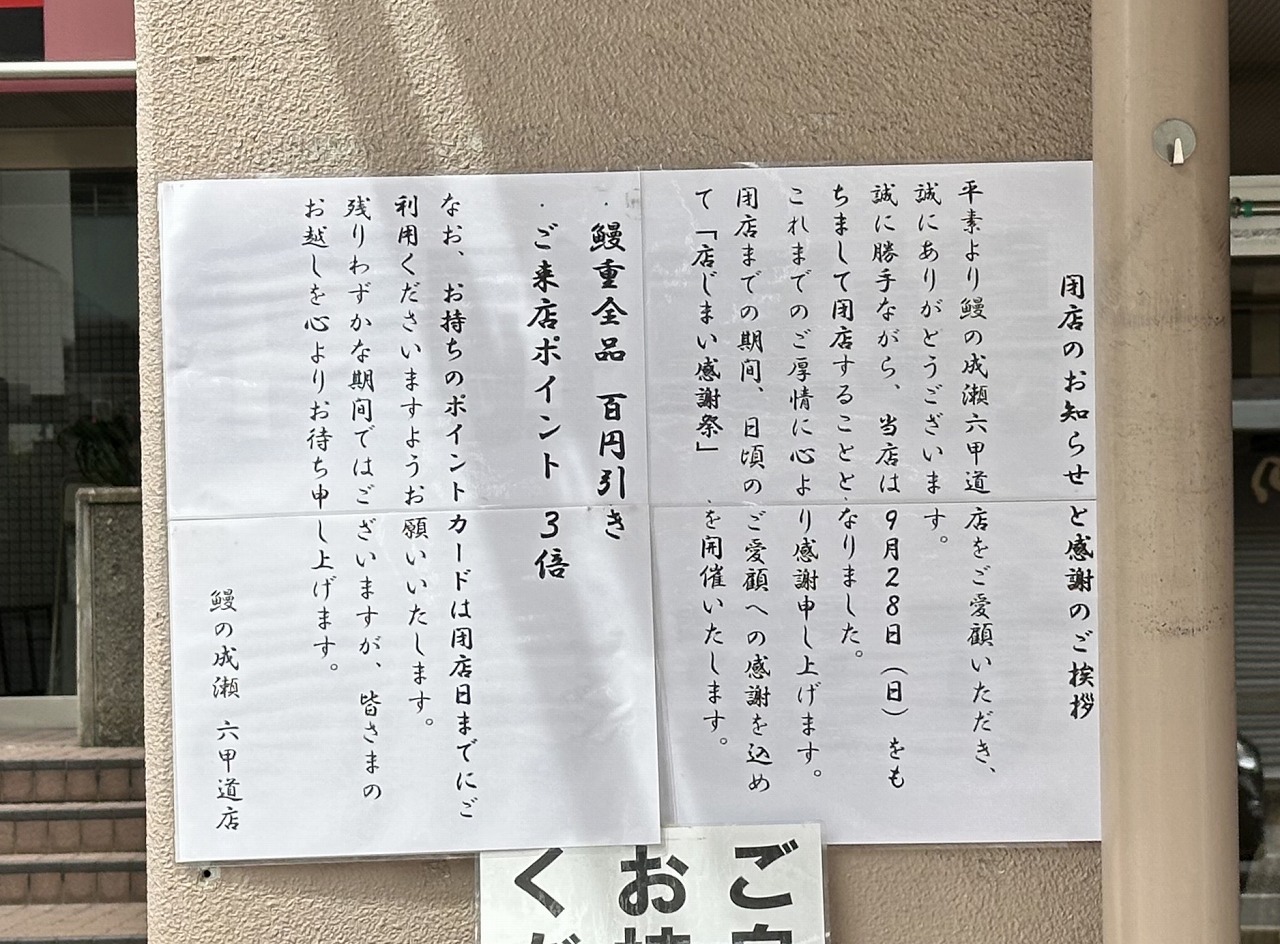 閉店のお知らせと感謝のご挨拶
平素より鰻の成瀬六甲道店をご愛顧いただき、
誠にありがとうございます。
誠に勝手ながら、当店は9月28日（日）をも
ちまして閉店することとなりました。
これまでのご厚情に心より感謝申し上げます。
閉店までの期間、日頃のご愛顧への感謝を込め
て「店じまい感謝祭」を開催いたします。
・鰻重全品 百円引き
・ご来店ポイント3倍
なお、お持ちのポイントカードは閉店日までにご
利用くださいますようお願いいたします。
残りわずかな期間ではございますが、皆さまの
お越しを心よりお待ち申し上げます。
鰻の成瀬 六甲道店
ご自
お持
くだ